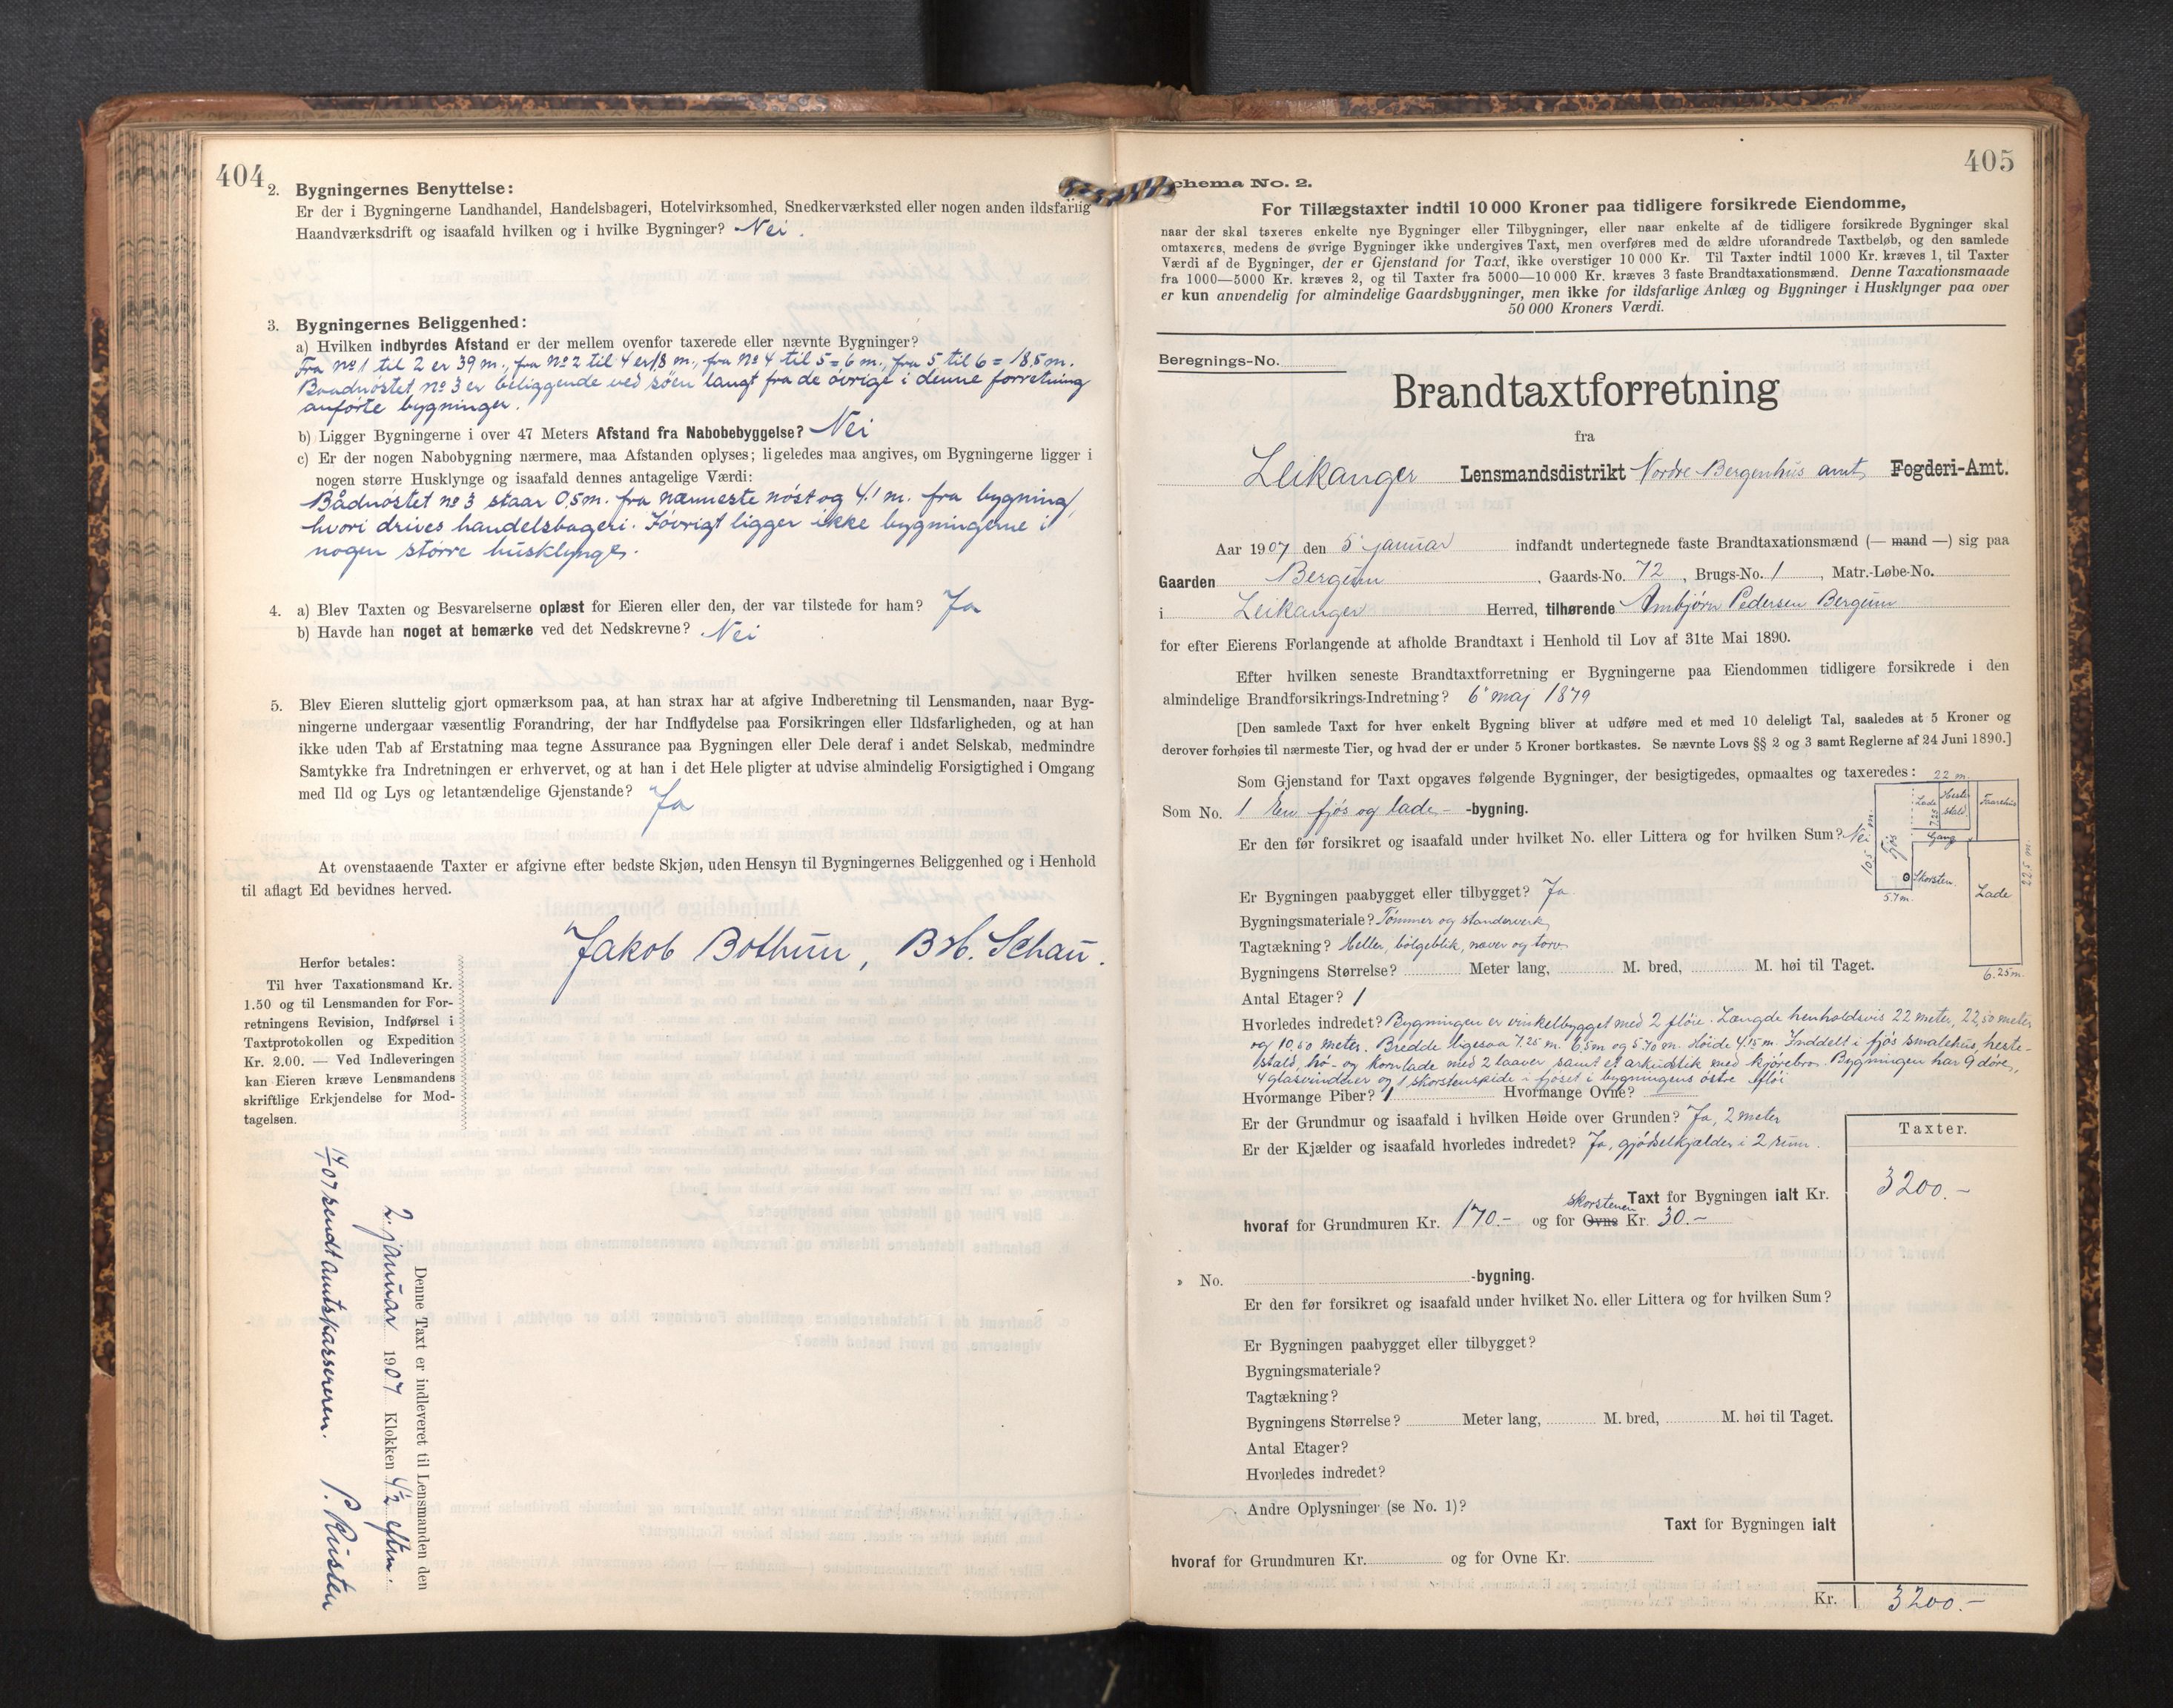 404
2. Bygningernes Benyttelse:
Er der i Bygningerne Landhandel, Handelsbageri, Hotelvirksomhed, Snedkerværksted eller nogen anden ildsfarlig
Haandværksdrift og isaafald hvilken og i hvilke Bygninger? Nei.
3. Bygningernes Beliggenhed:
a) Hvilken indbyrdes Afstand er der mellem ovenfor taxerede eller nævnte Bygninger?
Fra No 1 til 2 er 39 m., fra No 2 til 4 er 18 m., fra No 4 til 5 = 6 m., fra 5 til 6 = 18,5 m.
Baadnøstet No 3 er beliggende ved søen langt fra de øvrige i denne forretning
anførte bygninger.
b) Ligger Bygningerne i over 47 Meters Afstand fra Nabobebyggelse? Nei
c) Er der nogen Nabobygning nærmere, maa Afstanden oplyses; ligeledes maa angives, om Bygningerne ligger i
nogen større Husklynge og isaafald dennes antagelige Værdi:
Bådnøstet No 3 staar 0,5 m. fra nærmeste nøst og 4.1 m. fra bygning,
hvori drives handelsbageri. Iøvrigt ligger ikke bygningerne i
nogen større husklynge.
4. a) Blev Taxten og Besvarelserne oplæst for Eieren eller den, der var tilstede for ham? Ja
b) Havde han noget at bemærke ved det Nedskrevne? Nei
5. Blev Eieren sluttelig gjort opmærksom paa, at han strax har at afgive Indberetning til Lensmanden, naar Byg-
ningerne undergaar væsentlig Forandring, der har Indflydelse paa Forsikringen eller Ildsfarligheden, og at han
ikke uden Tab af Erstatning maa tegne Assurance paa Bygningen eller Dele deraf i andet Selskab, medmindre
Samtykke fra Indretningen er erhvervet, og at han i det Hele pligter at udvise almindelig Forsigtighed i Omgang
med Ild og Lys og letantændelige Gjenstande? Ja
At ovenstaaende Taxter er afgivne efter bedste Skjøn, uden Hensyn til Bygningernes Beliggenhed og i Henhold
til aflagt Ed bevidnes herved.
Jakob Bothun, B. H. Schau.
Herfor betales:
Til hver Taxationsmand Kr.
1.50 og til Lensmanden for For-
retningens Revision, Indførsel i
Taxtprotokollen og Expedition
Kr. 2.00. — Ved Indleveringen
kan Eieren kræve Lensmandens
skriftlige Erkjendelse for Mod-
tagelsen.
Denne Taxt er indleveret til Lensmanden den
2. januar 1907 Klokken 4½ eftm.
07 sendt amtskassereren. P. Risten
405
Schema No. 2.
For Tillægstaxter indtil 10 000 Kroner paa tidligere forsikrede Eiendomme,
naar der skal taxeres enkelte nye Bygninger eller Tilbygninger, eller naar enkelte af de tidligere forsikrede Bygninger skal
omtaxeres, medens de øvrige Bygninger ikke undergives Taxt, men overføres med de ældre uforandrede Taxtbeløb, og den samlede
Værdi af de Bygninger, der er Gjenstand for Taxt, ikke overstiger 10 000 Kr. Til Taxter indtil 1000 Kr. kræves 1, til Taxter
fra 1000—5000 Kr. kræves 2, og til Taxter fra 5000—10 000 Kr. kræves 3 faste Brandtaxationsmænd. Denne Taxationsmaade
er kun anvendelig for almindelige Gaardsbygninger, men ikke for ildsfarlige Anlæg og Bygninger i Husklynger paa over
50 000 Kroners Værdi.
Beregnings-No.
Brandtaxtforretning
fra
Leikanger Lensmandsdistrikt Nordre Bergenhus amt Fogderi-Amt.
Aar 1907 den 5' januar indfandt undertegnede faste Brandtaxationsmænd (— mand —) sig paa
Gaarden Bergum, Gaards-No. 72, Brugs-No. 1, Matr.-Løbe-No.
i Leikanger Herred, tilhørende Ambjørn Pedersen Bergum
for efter Eierens Forlangende at afholde Brandtaxt i Henhold til Lov af 31te Mai 1890.
Efter hvilken seneste Brandtaxtforretning er Bygningerne paa Eiendommen tidligere forsikrede i den
almindelige Brandforsikrings-Indretning? 6' maj 1879
[Den samlede Taxt for hver enkelt Bygning bliver at udføre med et med 10 deleligt Tal, saaledes at 5 Kroner og
derover forhøies til nærmeste Tier, og hvad der er under 5 Kroner bortkastes. Se nævnte Lovs §§ 2 og 3 samt Reglerne af 24 Juni 1890.]
Som Gjenstand for Taxt opgaves følgende Bygninger, der besigtigedes, opmaaltes og taxeredes:
Som No. 1 En fjøs og lade- -bygning.
Er den før forsikret og isaafald under hvilket No. eller Littera og for hvilken Sum? Nei
22 m.
Lade
Heste
stald
Faarehus
7.25
Gang
10.5 m.
fjøs
Skorsten
5.7 m.
Lade
22.5 m.
6.25 m.
Er Bygningen paabygget eller tilbygget? Ja
Bygningsmateriale? Tømmer og standerverk
Tagtækning? Heller, bølgeblik, næver og torv
Bygningens Størrelse? Meter lang, M. bred, M. høi til Taget.
Antal Etager? 1
Hvorledes indredet? Bygningen er vinkelbygget med 2 fløie. Længde henholdsvis 22 meter, 22,50 meter
og 10,50 meter. Bredde ligesaa 7.25 m. 6.5 m og 5.70 m. Høide 4.15 m. Inddelt i fjøs smalehus, heste-
stald, hø- og kornlade med 2 laaver, samt et arkudstik med kjørebro. Bygningen har 9 døre,
4 glasvinduer og 1 skorstenspibe i fjøset i bygningens østre fløi
Hvormange Piber? 1 Hvormange Ovne?
Er der Grundmur og isaafald i hvilken Høide over Grunden? Ja, 2 meter
Er der Kjælder og isaafald hvorledes indredet? Ja, gjødselkjælder i 2 rum.
Taxter.
Taxt for Bygningen ialt Kr. 3200.-
skorstenen
hvoraf for Grundmuren Kr. 170.- og for Ovne Kr. 30.-
» No. -bygning.
Er den før forsikret og isaafald under hvilket No. eller Littera og for hvilken Sum?
Er Bygningen paabygget eller tilbygget?
Bygningsmateriale?
Tagtækning?
Bygningens Størrelse? Meter lang, M. bred, M. høi til Taget.
Antal Etager?
Hvorledes indredet?
Andre Oplysninger (se No. 1)?
Taxt for Bygningen ialt
hvoraf for Grundmuren Kr. og for Ovne Kr.
Kr. 3200.-